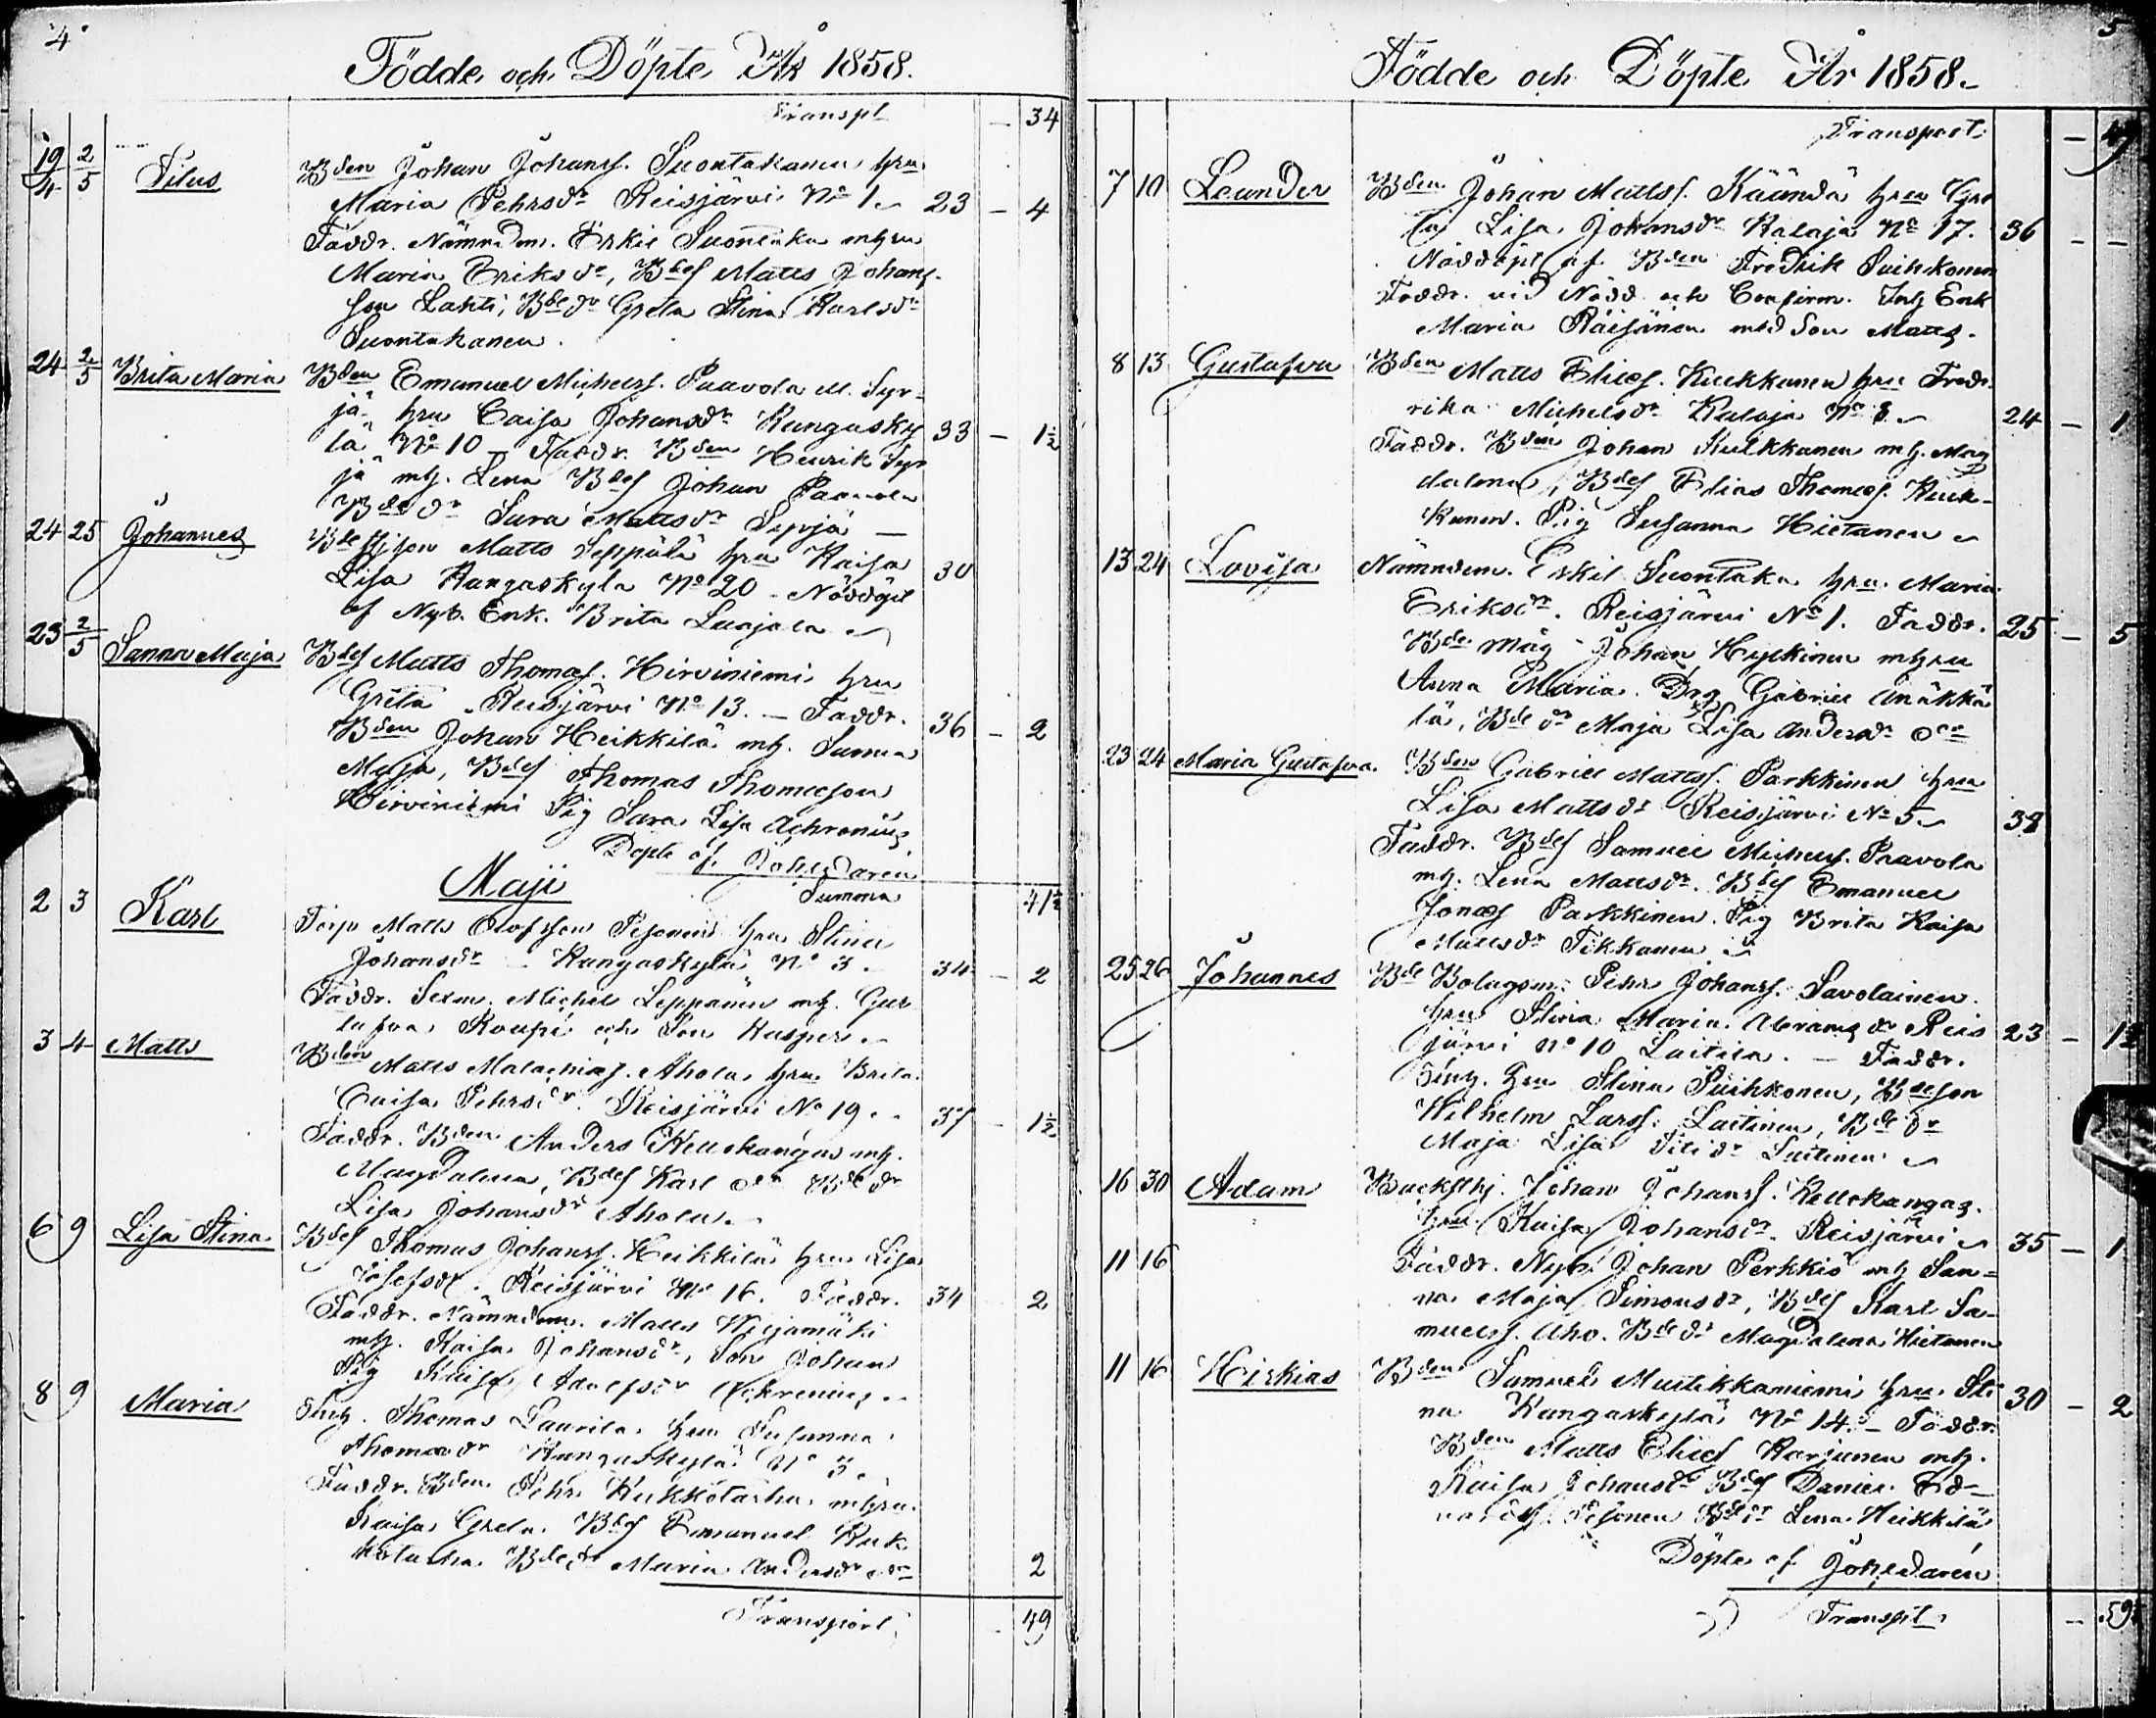 4
Födde och Döpte År 1858.
Transpt — 34
19/4 2/5 Titus Bden Johan Johanss. Suontakanen hru
Maria Pehrsdr Reisjärvi No 1. 23 — 4
Faddr. Nämndem. Eskil Suontaka mhru
Maria Eriksdr, Bdes Matts Johans-
son Lahti, Bdedr Greta Stina Karlsdr
Suontakanen.
24 2/5 Brita Maria Bden Emanuel Michelss. Paavola Syr-
jä hru Caisa Johansdr Kangasky 33 — 1½
lä No 10 – Faddr. Bden Henrik Syr
jä mh. Lena Bdes Johan Paavola
Bdedr Sara Mattsdr Syrjä —
24 25 Johannes Matts Seppälä hru Kaisa 30
Lisa Kangaskyla No 20 – Nöddöpt
af Nyb. Enk. Brita Luojola
23 2/5 Sanna Maja Bdes Matts Thomass. Hirviniemi hru
Greta Reisjärvi No 13. – Faddr. 36 — 2
Bden Johan Heikkilä mh. Sanna
Maja, Bdes Thomas Thomasson
Hirviniemi Pig Sara Lisa Achrenius
Döpte af Joh. Daren
Maji Summa 41½
2 3 Karl Torp Matts Olofsson Pesonen hru Stina
Johansdr – Kangaskylä No 3. 34 — 2
Faddr. Sexm. Michel Leppänen mh. Gus
tafva Koupi och Son Kasper
3 4 Matts Bden Matts Malachiass. Ahola hru Brita
Caisa Pehrsdr. Reisjärvi No 19. 37 — 1½
Faddr. Bden Anders Kellokangas mh.
Magdalena, Bdes Karl Bdedr
Lisa Johansdr Ahola.
6 9 Lisa Stina Bdes Thomas Johanss. Heikkilä hru Lisa
Josefsdr. Reisjärvi No 16. Faddr. 34 2
Faddr. Nämndem. Matts Niejamäki
mh. Kaisa Johansdr, Son Johan
Pig Kaisa Adolfsdr Achrenius
8 9 Maria Inh. Thomas Laurila hru Susanna
Thomasdr Kangaskylä No 3.
Faddr. Bden Pehr Kukkotarha mhru
Kaisa Greta. Bdes Emanuel Kuk
kotarha Bdedr Maria Andersdr 2
Transport 49
5
Födde och Döpte År 1858.
Transport — 49
7 10 Leander Bden Johan Mattss. Käändä hru Gre
ta Lisa Johansdr Kalaja No 17. 36 — —
Nöddöpt af Bden Fredrik Puihkonen
Faddr. vid Nödd. och Confirm. Inh Enk
Maria Räisänen med Son Matts.
8 13 Gustafva Bden Matts Eliass. Kuckkanen hru Fred-
rika Michelsdr Kalaja No 8. 24 — 1
Faddr. Bden Johan Kukkanen mh. Mag
dalena, Bdes Elias Thomass. Kuck-
kanen. Pig Susanna Hietanen
13 24 Lovisa Nämndem. Eskil Suontaka hru Maria
Eriksdr. Reisjärvi No 1. Faddr. 25 — 5
Bde Måg Johan Hyckinen mhru
Anna Maria. Drg Gabriel Määkkä
lä, Bdedr Maja Lisa Andersdr
23 24 Maria Gustafva. Bden Gabriel Mattss. Parkkinen hru
Lisa Mattsdr Reisjärvi No 5 38
Faddr. Bdes Samuel Michelss. Paavola
mh. Lena Mattsdr. Bdes Emanuel
Jonass Parkkinen. Pig Brita Kaisa
Mattsdr Tikkanen
25 26 Johannes Bde Bolagsm. Pehr Johanss. Savolainen
hru Stina Maria Abramsdr Reis 23 — 1½
järvi No 10 Laitila. – Faddr.
Inh. hru Stina Puihkonen, Bdeson
Wilhelm Larss. Laitinen, Bdedr
Maja Lisa Laitinen
16 30 Adam Backsthj. Johan Johanss. Kellokangas.
hru Kaisa Johansdr. Reisjärvi 35 — 1
11 16 Faddr. Nyb. Johan Perkkiö mh San-
na Maja Simonsdr, Bdes Karl Sa-
muelss. Aho. Bdedr Magdalena Hietanen
11 16 Hiskias Bden Samuel Mustikkaniemi hru Sti 30 — 2
na Kangaskylä No 14. – Faddr.
Bden Matts Eliass Karjunen mh.
Kaisa Johansdr Bdes Daniel Ed-
Pesonen Bdedr Lena Heikkilä
Döpte af Joh. Daren
Transpt — 59½